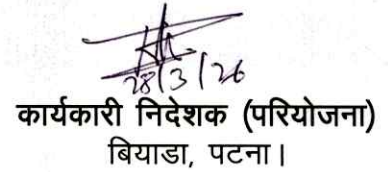 28/3/26
कार्यकारी निदेशक (परियोजना)
बियाडा, पटना।